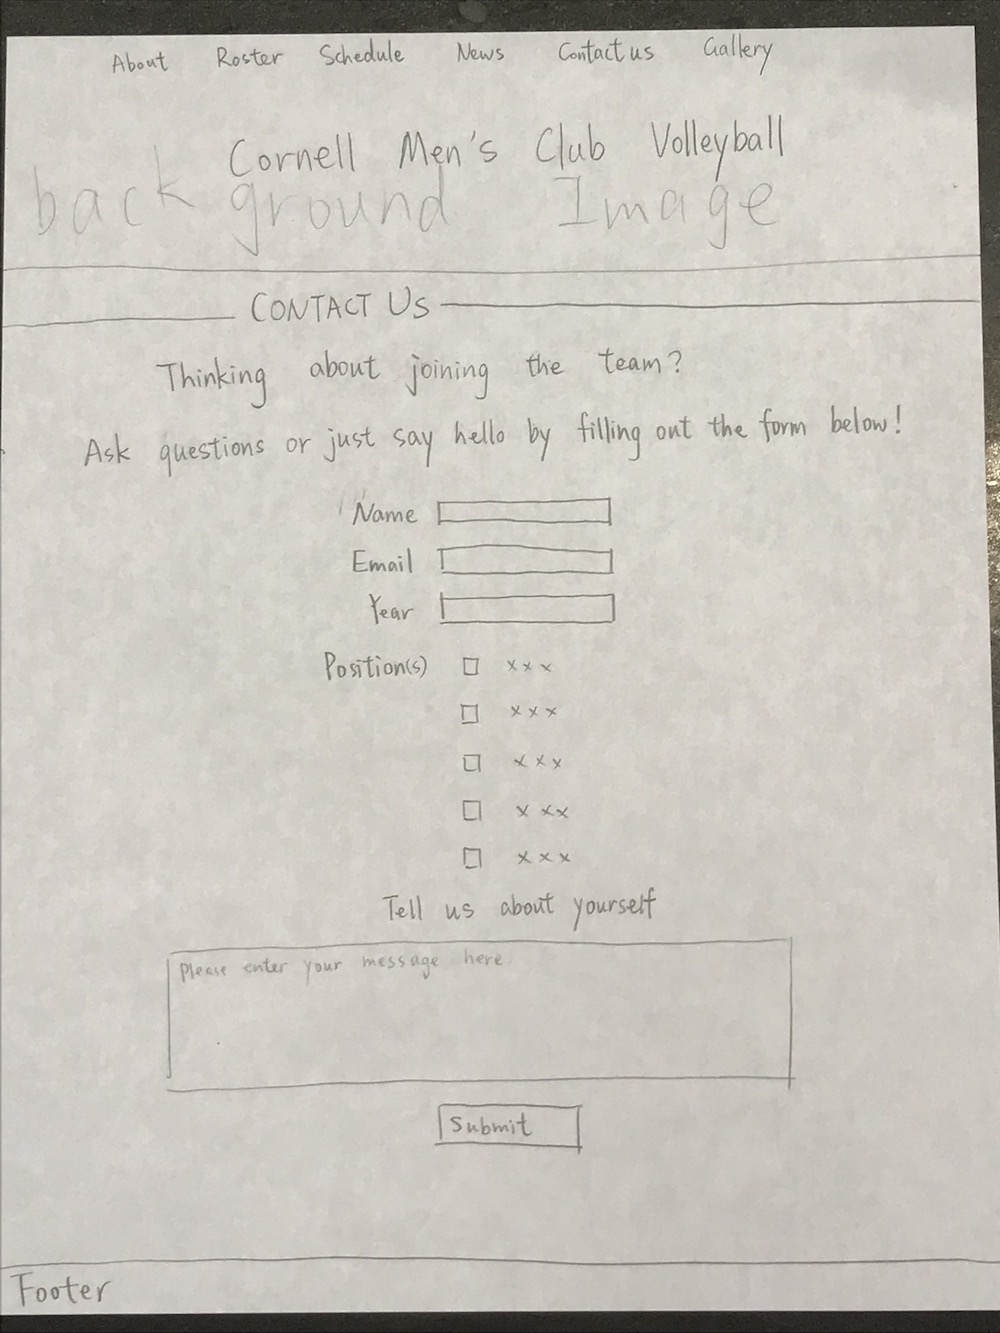 About Roster Schedule News Contact us Gallery
Cornell Men's Club Volleyball
background Image
CONTACT US
Thinking about joining the team?
Ask questions or just say hello by filling out the form below!
Name
Email
Year
Position(s) xxx
xxx
xxx
xxx
xxx
Tell us about yourself
Please enter your message here
Submit
Footer